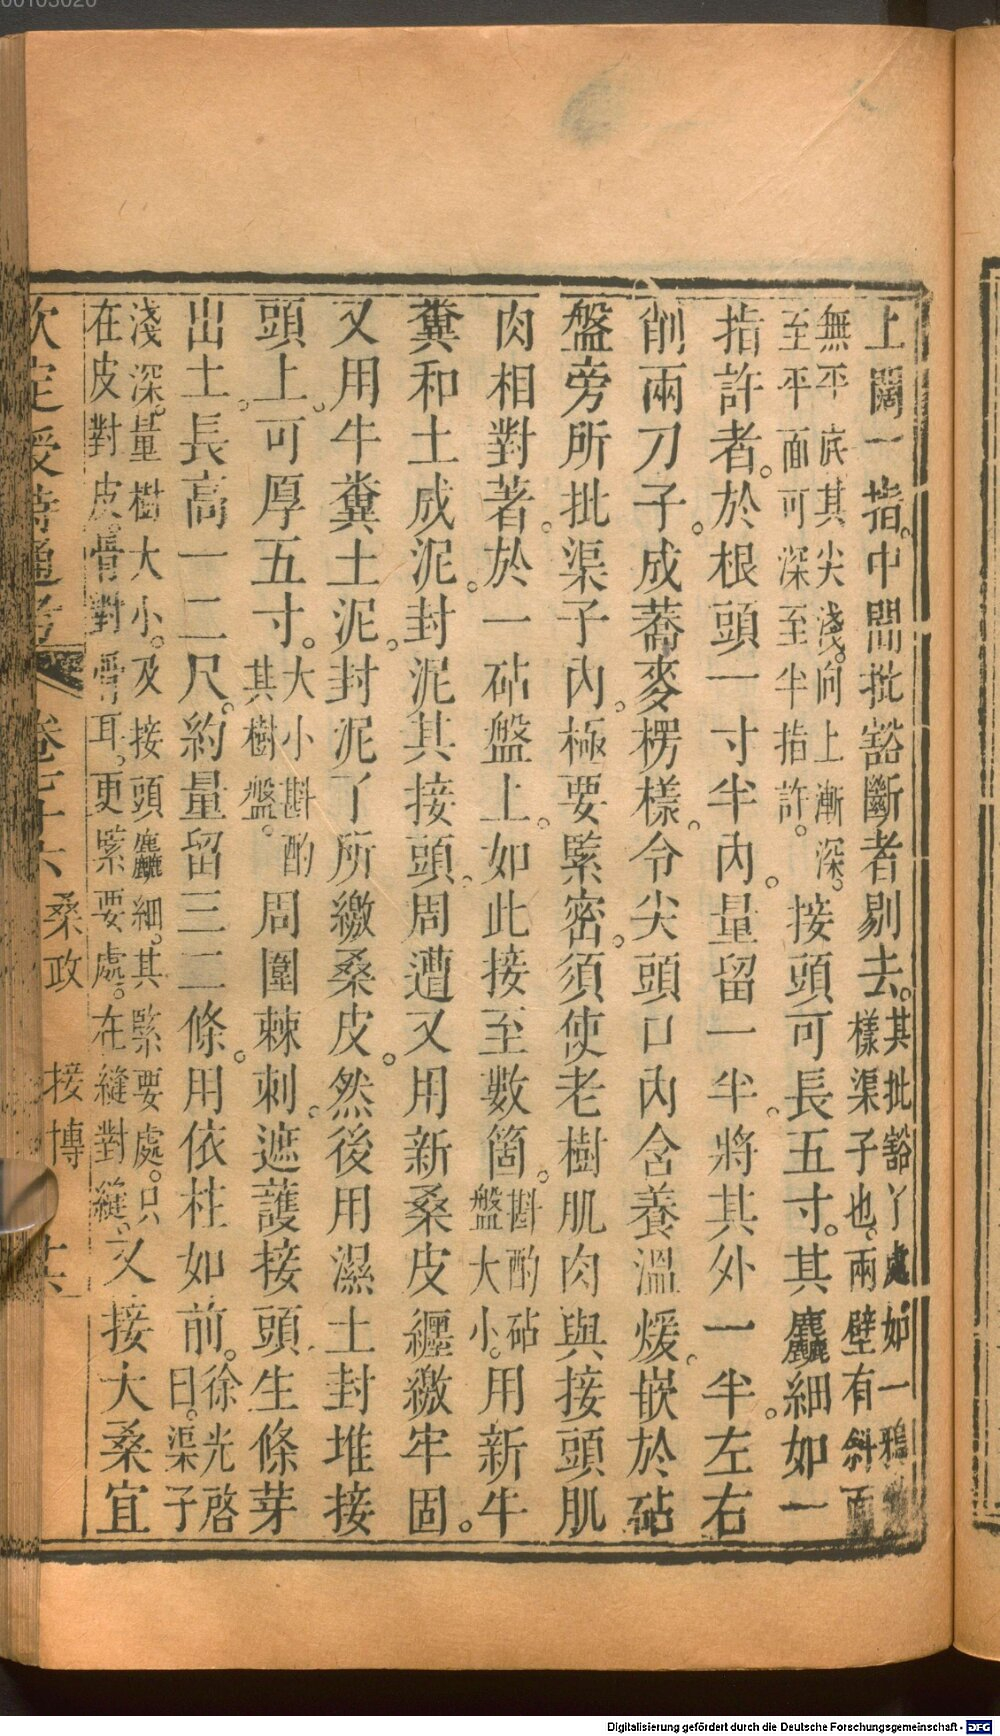 上闊一指。中間批豁斷者剔去。其批豁了處如一鴉
樣渠子也。兩壁有斜面
無平底其尖淺。向上漸深。
至平面可深至半指許。接頭可長五寸。其麤細如一
指許者。於根頭一寸半內。量留一半。將其外一半。左右
削兩刀子。成蕎麥楞樣。令尖頭口內含養溫煖。嵌於砧
盤旁所批渠子內。極要緊密。須使老樹肌肉與接頭肌
肉相對著。於一砧盤上。如此接至數箇。斟酌砧
盤大小。用新牛
糞和土成泥。封泥其接頭。周遭又用新桑皮纏繳牢固。
又用牛糞土泥。封泥了所繳桑皮。然後用濕土封堆接
頭上。可厚五寸。大小斟酌
其樹盤。周圍棘刺。遮護接頭生條芽
出土。長高一二尺。約量留三二條。用依柱如前。徐光啓
曰。渠子
淺深。量樹大小。及接頭麤細。其緊要處。只
在皮對皮骨對骨耳。更緊要處。在縫對縫。又接大桑宜
欽定授時通考 卷七十六 桑政 接博 十六
00103020
Digitalisierung gefördert durch die Deutsche Forschungsgemeinschaft - DFG